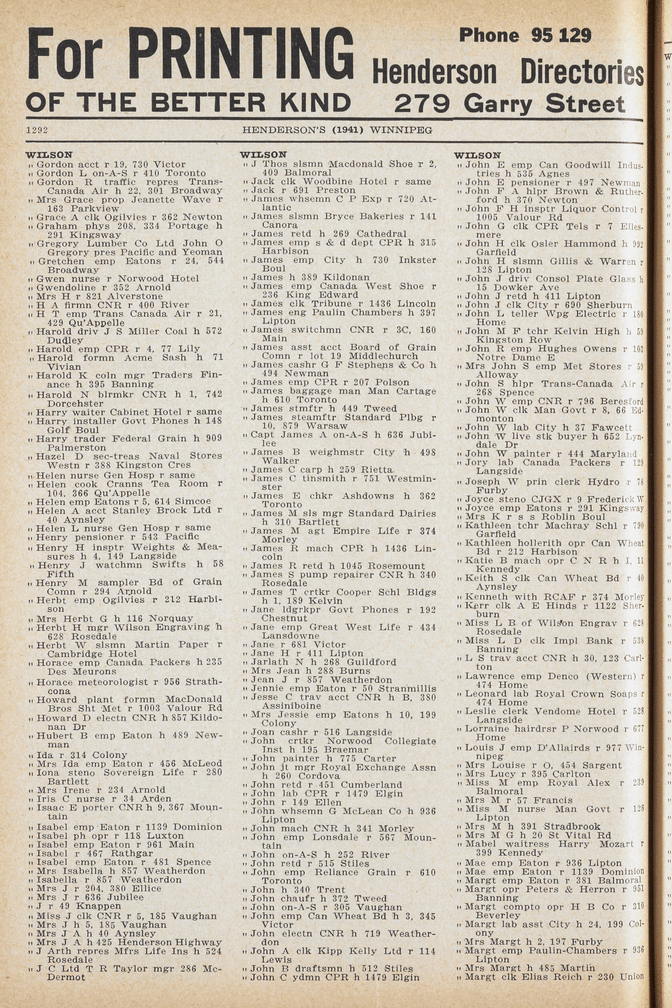 For PRINTING
OF THE BETTER KIND
Phone 95 129
Henderson Directories
279 Garry Street
1292 HENDERSON'S (1941) WINNIPEG
WILSON
„ Gordon acct r 19, 730 Victor
„ Gordon L on-A-S r 410 Toronto
„ Gordon R traffic repres Trans-
Canada Air h 22, 301 Broadway
„ Mrs Grace prop Jeanette Wave r
163 Parkview
„ Grace A clk Ogilvies r 362 Newton
„ Graham phys 208, 334 Portage h
291 Kingsway
„ Gregory Lumber Co Ltd John O
Gregory pres Pacific and Yeoman
„ Gretchen emp Eatons r 24, 544
Broadway
„ Gwen nurse r Norwood Hotel
„ Gwendoline r 352 Arnold
„ Mrs H r 821 Alverstone
„ H A firmn CNR r 400 River
„ H T emp Trans Canada Air r 21,
429 Qu'Appelle
„ Harold driv J S Miller Coal h 572
Dudley
„ Harold emp CPR r 4, 77 Lily
„ Harold formn Acme Sash h 71
Vivian
„ Harold K coln mgr Traders Fin-
ance h 395 Banning
„ Harold N blrmkr CNR h 1, 742
Dorchester
„ Harry waiter Cabinet Hotel r same
„ Harry installer Govt Phones h 148
Golf Boul
„ Harry trader Federal Grain h 909
Palmerston
„ Hazel D sec-treas Naval Stores
Westn r 388 Kingston Cres
„ Helen nurse Gen Hosp r same
„ Helen cook Cranns Tea Room r
104, 366 Qu'Appelle
„ Helen emp Eatons r 5, 614 Simcoe
„ Helen A acct Stanley Brock Ltd r
40 Aynsley
„ Helen L nurse Gen Hosp r same
„ Henry pensioner r 543 Pacific
„ Henry H insptr Weights & Mea-
sures h 4, 149 Langside
„ Henry J watchmn Swifts h 58
Fifth
„ Henry M sampler Bd of Grain
Comn r 294 Arnold
„ Herbt emp Ogilvies r 212 Harbi-
son
„ Mrs Herbt G h 116 Norquay
„ Herbt H mgr Wilson Engraving h
628 Rosedale
„ Herbt W slsmn Martin Paper r
Cambridge Hotel
„ Horace emp Canada Packers h 235
Des Meurons
„ Horace meteorologist r 956 Strath-
cona
„ Howard plant formn MacDonald
Bros Sht Met r 1003 Valour Rd
„ Howard D electn CNR h 857 Kildo-
nan Dr
„ Hubert B emp Eaton h 489 New-
man
„ Ida r 314 Colony
„ Mrs Ida emp Eaton r 456 McLeod
„ Iona steno Sovereign Life r 280
Bartlett
„ Mrs Irene r 234 Arnold
„ Iris C nurse r 34 Arden
„ Isaac E porter CNR h 9, 367 Moun-
tain
„ Isabel emp Eaton r 1139 Dominion
„ Isabel ph opr r 118 Luxton
„ Isabel emp Eaton r 961 Main
„ Isabel r 467 Rathgar
„ Isabel emp Eaton r 481 Spence
„ Mrs Isabella h 857 Weatherdon
„ Isabella r 857 Weatherdon
„ Mrs J r 204, 380 Ellice
„ Mrs J r 636 Jubilee
„ J r 49 Knappen
„ Miss J clk CNR r 5, 185 Vaughan
„ Mrs J h 5, 185 Vaughan
„ Mrs J A h 40 Aynsley
„ Mrs J A h 425 Henderson Highway
„ J Arth repres Mfrs Life Ins h 524
Rosedale
„ J C Ltd T R Taylor mgr 286 Mc-
Dermot
WILSON
„ J Thos slsmn Macdonald Shoe r 2,
409 Balmoral
„ Jack clk Woodbine Hotel r same
„ Jack r 691 Preston
„ James whsemn C P Exp r 720 At-
lantic
„ James slsmn Bryce Bakeries r 141
Canora
„ James retd h 269 Cathedral
„ James emp s & d dept CPR h 315
Harbison
„ James emp City h 730 Inkster
Boul
„ James h 389 Kildonan
„ James emp Canada West Shoe r
236 King Edward
„ James clk Tribune r 1436 Lincoln
„ James eng Paulin Chambers h 397
Lipton
„ James switchmn CNR r 3C, 160
Main
„ James asst acct Board of Grain
Comn r lot 19 Middlechurch
„ James cashr G F Stephens & Co h
494 Newman
„ James emp CPR r 207 Polson
„ James baggage man Man Cartage
h 610 Toronto
„ James stmftr h 449 Tweed
„ James steamftr Standard Plbg r
10, 879 Warsaw
„ Capt James A on-A-S h 636 Jubi-
lee
„ James B weighmstr City h 498
Walker
„ James C carp h 259 Rietta
„ James C tinsmith r 751 Westmin-
ster
„ James E chkr Ashdowns h 362
Toronto
„ James M sls mgr Standard Dairies
h 310 Bartlett
„ James M agt Empire Life r 374
Morley
„ James R mach CPR h 1436 Lin-
coln
„ James R retd h 1045 Rosemount
„ James S pump repairer CNR h 340
Rosedale
„ James T crtkr Cooper Schl Bldgs
h 1, 189 Kelvin
„ Jane ldgrkpr Govt Phones r 192
Chestnut
„ Jane emp Great West Life r 434
Lansdowne
„ Jane r 681 Victor
„ Jane H r 411 Lipton
„ Jarlath N h 268 Guildford
„ Mrs Jean h 288 Burns
„ Jean J r 857 Weatherdon
„ Jennie emp Eaton r 50 Stranmillis
„ Jesse C trav acct CNR h B, 380
Assiniboine
„ Mrs Jessie emp Eatons h 10, 199
Colony
„ Joan cashr r 516 Langside
„ John crtkr Norwood Collegiate
Inst h 195 Braemar
„ John painter h 775 Carter
„ John jt mgr Royal Exchange Assn
h 260 Cordova
„ John retd r 451 Cumberland
„ John lab CPR r 1479 Elgin
„ John r 149 Ellen
„ John whsemn G McLean Co h 936
Lipton
„ John mach CNR h 341 Morley
„ John emp Lonsdale r 567 Moun-
tain
„ John on-A-S h 252 River
„ John retd r 515 Stiles
„ John emp Reliance Grain r 610
Toronto
„ John h 340 Trent
„ John chaufr h 372 Tweed
„ John on-A-S r 305 Vaughan
„ John emp Can Wheat Bd h 3, 345
Victor
„ John electn CNR h 719 Weather-
don
„ John A clk Kipp Kelly Ltd r 114
Lewis
„ John B draftsmn h 512 Stiles
„ John C ydmn CPR h 1479 Elgin
WILSON
„ John E emp Can Goodwill Indus-
tries h 535 Agnes
„ John E pensioner r 497 Newman
„ John F A hlpr Brown & Ruther-
ford h 370 Newton
„ John F H insptr Liquor Control r
1005 Valour Rd
„ John G clk CPR Tels r 7 Elles-
mere
„ John H clk Osler Hammond h 992
Garfield
„ John H slsmn Gillis & Warren r
128 Lipton
„ John J driv Consol Plate Glass h
15 Dowker Ave
„ John J retd h 411 Lipton
„ John J clk City r 690 Sherburn
„ John L teller Wpg Electric r 180
Home
„ John M F tchr Kelvin High h
Kingston Row
„ John R emp Hughes Owens r
Notre Dame E
„ Mrs John S emp Met Stores r
Alloway
„ John S hlpr Trans-Canada Air r
268 Spence
„ John W emp CNR r 796 Beresford
„ John W clk Man Govt r 8, 66 Ed-
monton
„ John W lab City h 37 Fawcett
„ John W live stk buyer h 652 Lyn-
dale Dr
„ John W painter r 444 Maryland
„ Jory lab Canada Packers r
Langside
„ Joseph W prin clerk Hydro r
Furby
„ Joyce steno CJGX r 9 Frederick W
„ Joyce emp Eatons r 291 Kingsway
„ Mrs K r s s Roblin Boul
„ Kathleen tchr Machray Schl r 790
Garfield
„ Kathleen hollerith opr Can Wheat
Bd r 212 Harbison
„ Katie B mach opr C N R h 1, 11
Kennedy
„ Keith S clk Can Wheat Bd r 40
Aynsley
„ Kenneth with RCAF r 374 Morley
„ Kerr clk A E Hinds r 1122 Sher-
burn
„ Miss L B of Wilson Engrav r 628
Rosedale
„ Miss L D clk Impl Bank r 538
Banning
„ L S trav acct CNR h 30, 123 Carl-
ton
„ Lawrence emp Denco (Western) r
474 Home
„ Leonard lab Royal Crown Soaps r
474 Home
„ Leslie clerk Vendome Hotel r 528
Langside
„ Lorraine hairdrsr P Norwood r 677
Home
„ Louis J emp D'Allairds r 977 Win-
nipeg
„ Mrs Louise r O, 454 Sargent
„ Mrs Lucy r 395 Carlton
„ Miss M emp Royal Alex r 239
Balmoral
„ Mrs M r 57 Francis
„ Miss M nurse Man Govt r 128
Lipton
„ Mrs M h 391 Stradbrook
„ Mrs M G h 20 St Vital Rd
„ Mabel waitress Harry Mozart r
399 Kennedy
„ Mae emp Eaton r 936 Lipton
„ Mae emp Eaton r 1139 Dominion
„ Margt emp Eaton r 381 Balmoral
„ Margt opr Peters & Herron r 951
Banning
„ Margt compto opr H B Co r 310
Beverley
„ Margt lab asst City h 24, 199 Col-
ony
„ Mrs Margt h 2, 197 Furby
„ Margt emp Paulin-Chambers r 936
Lipton
„ Mrs Margt h 485 Martin
„ Margt clk Elias Reich r 230 Union